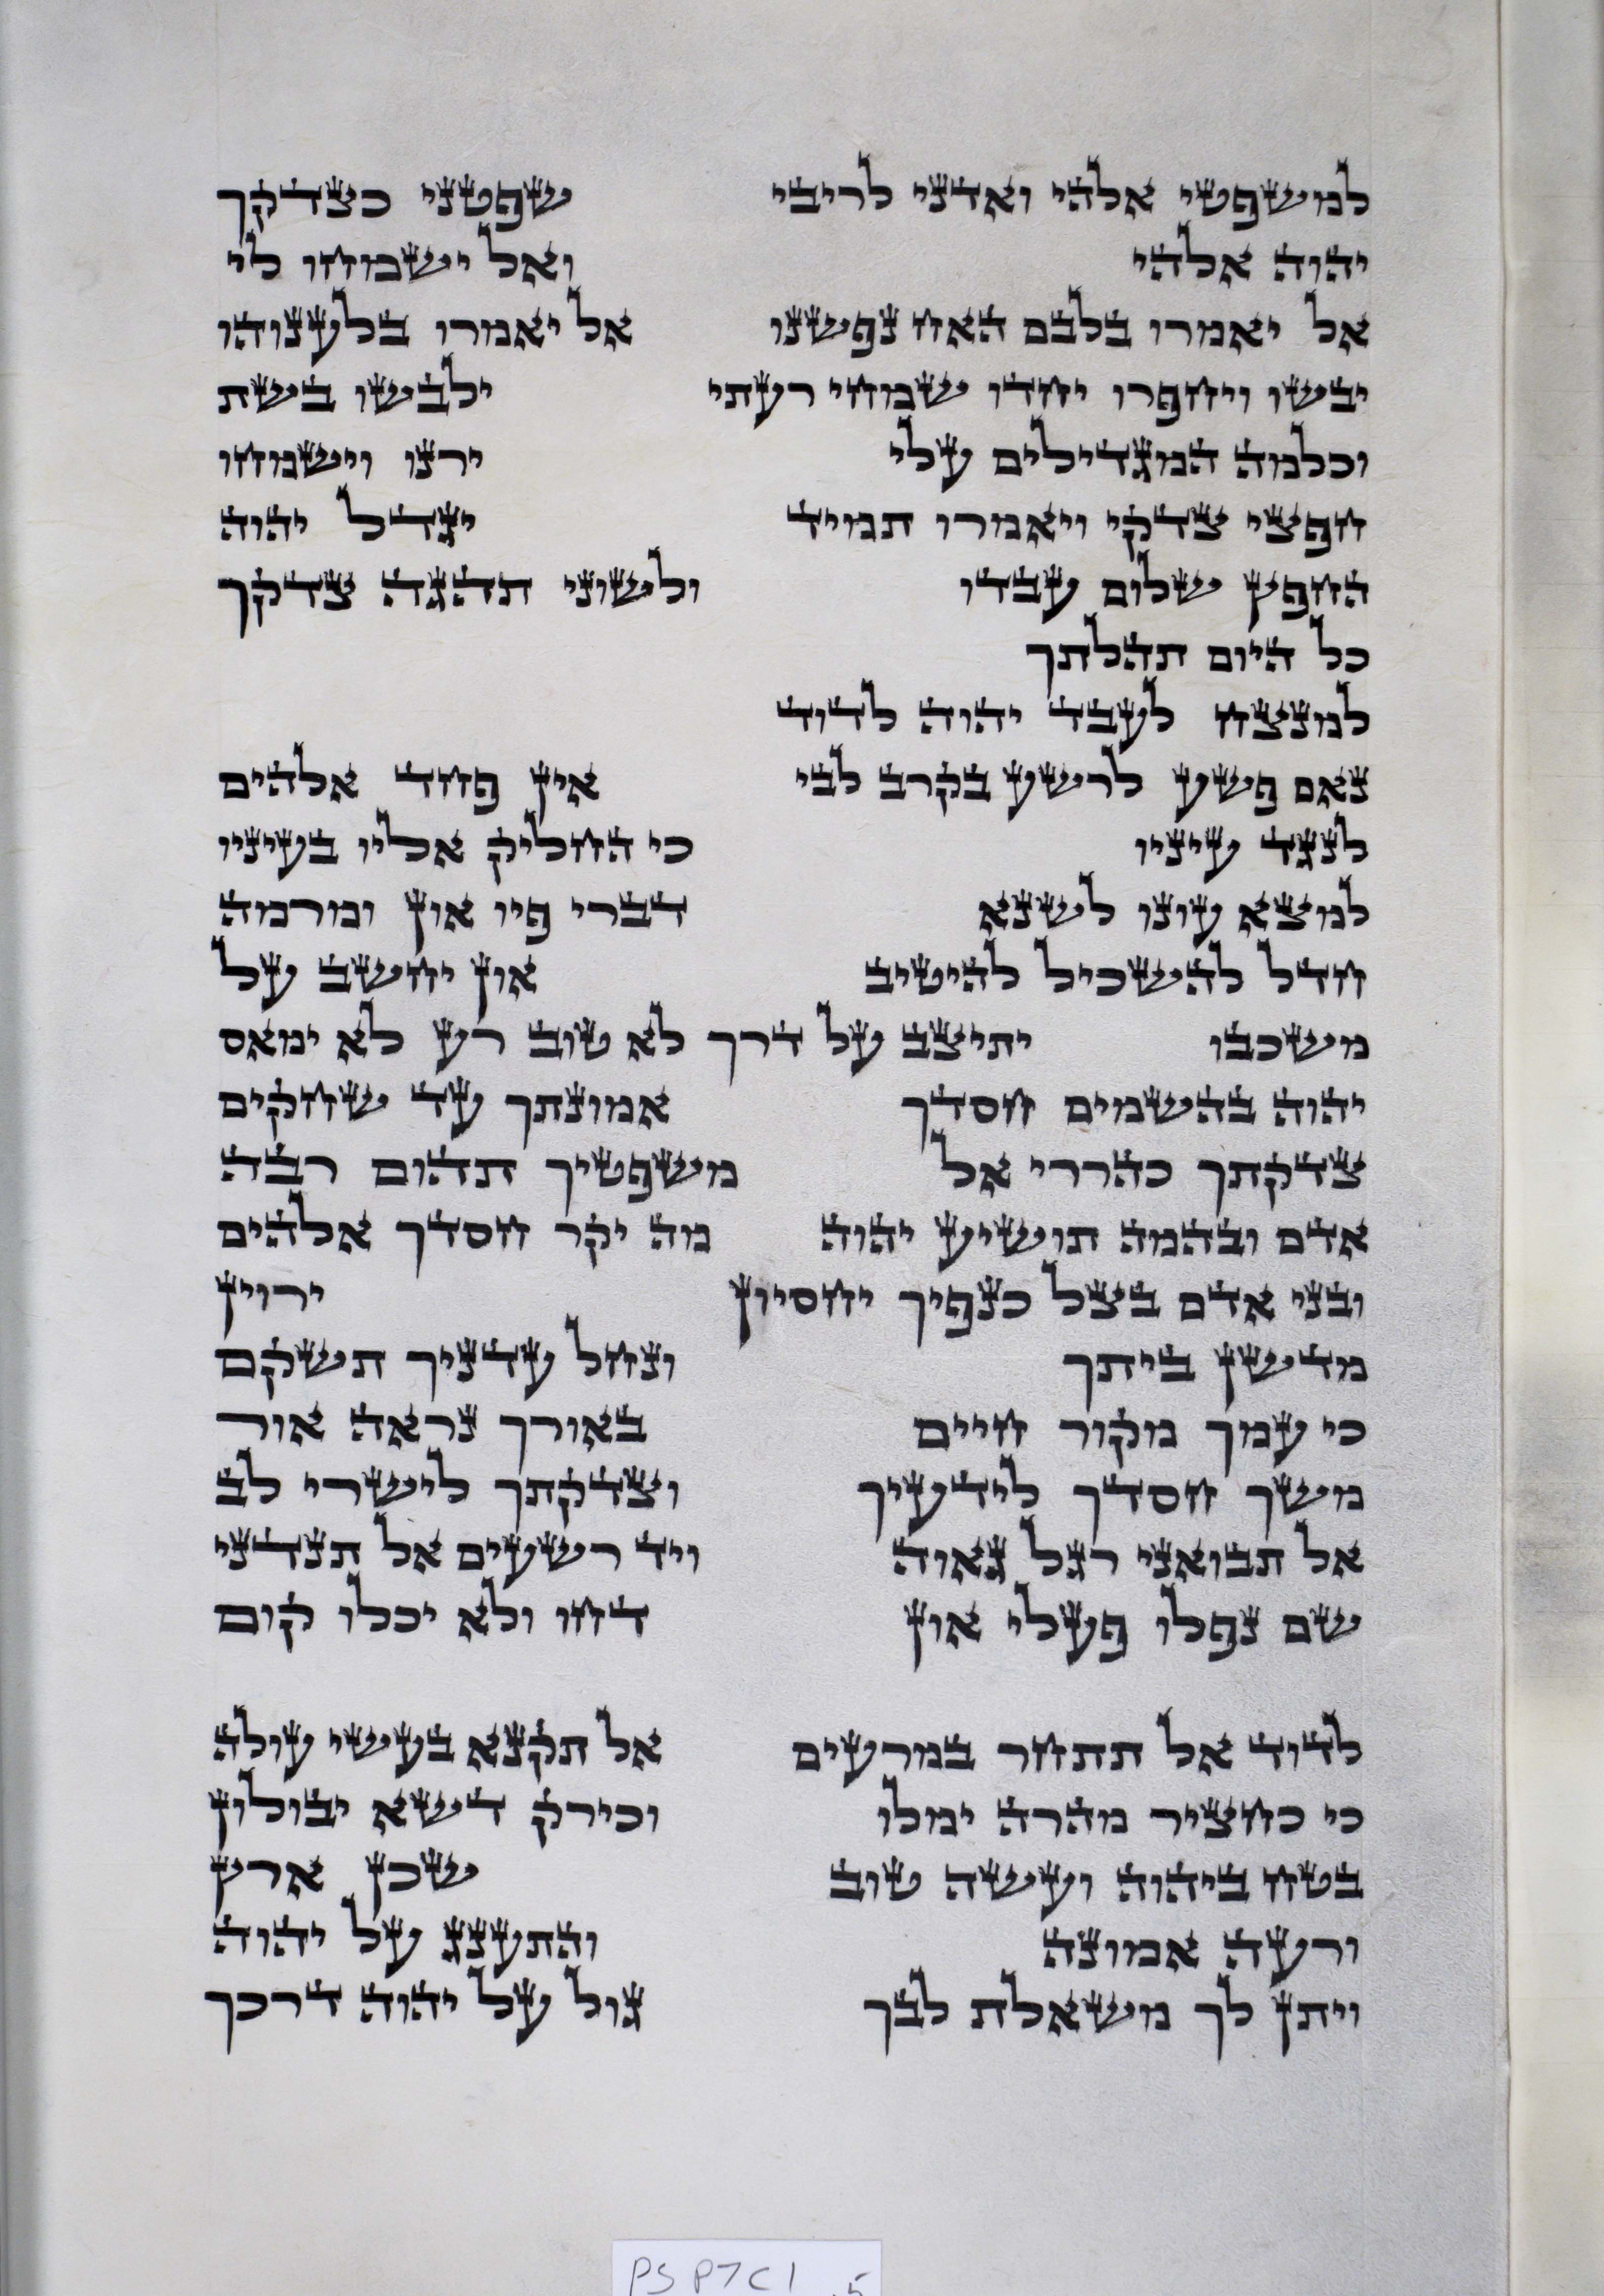 למשפטי אלהי ואדני לריבי שפטני כצדקך
יהוה אלהי ואל ישמחו לי
אל יאמרו בלבם האח נפשנו אל יאמרו בלענוהו
יבשו ויחפרו יחדו שמחי רעתי ילבשו בשת
וכלמה המגדילים עלי ירנו וישמחו
חפצי צדקי ויאמרו תמיד יגדל יהוה
החפץ שלום עבדו ולשוני תהגה צדקך
כל היום תהלתך
למנצח לעבד יהוה לדוד
נאם פשע לרשע בקרב לבי אין פחד אלהים
לנגד עיניו כי החליק אליו בעיניו
למצא עונו לשנא דברי פיו און ומרמה
חדל להשכיל להיטיב און יחשב על
משכבו יתיצב על דרך לא טוב רע לא ימאס
יהוה בהשמים חסדך אמונתך עד שחקים
צדקתך כהררי אל משפטיך תהום רבה
אדם ובהמה תושיע יהוה מה יקר חסדך אלהים
ובני אדם בצל כנפיך יחסיון ירוין
מדשן ביתך ונחל עדניך תשקם
כי עמך מקור חיים באורך נראה אור
משך חסדך לידעיך וצדקתך לישרי לב
אל תבואני רגל גאוה ויד רשעים אל תנדני
שם נפלו פעלי און דחו ולא יכלו קום
לדוד אל תתחר במרעים אל תקנא בעשי עולה
כי כחציר מהרה ימלו וכירק דשא יבולון
בטח ביהוה ועשה טוב שכן ארץ
ורעה אמונה והתענג על יהוה
ויתן לך משאלת לבך גול על יהוה דרכך
PS P7C1 .5